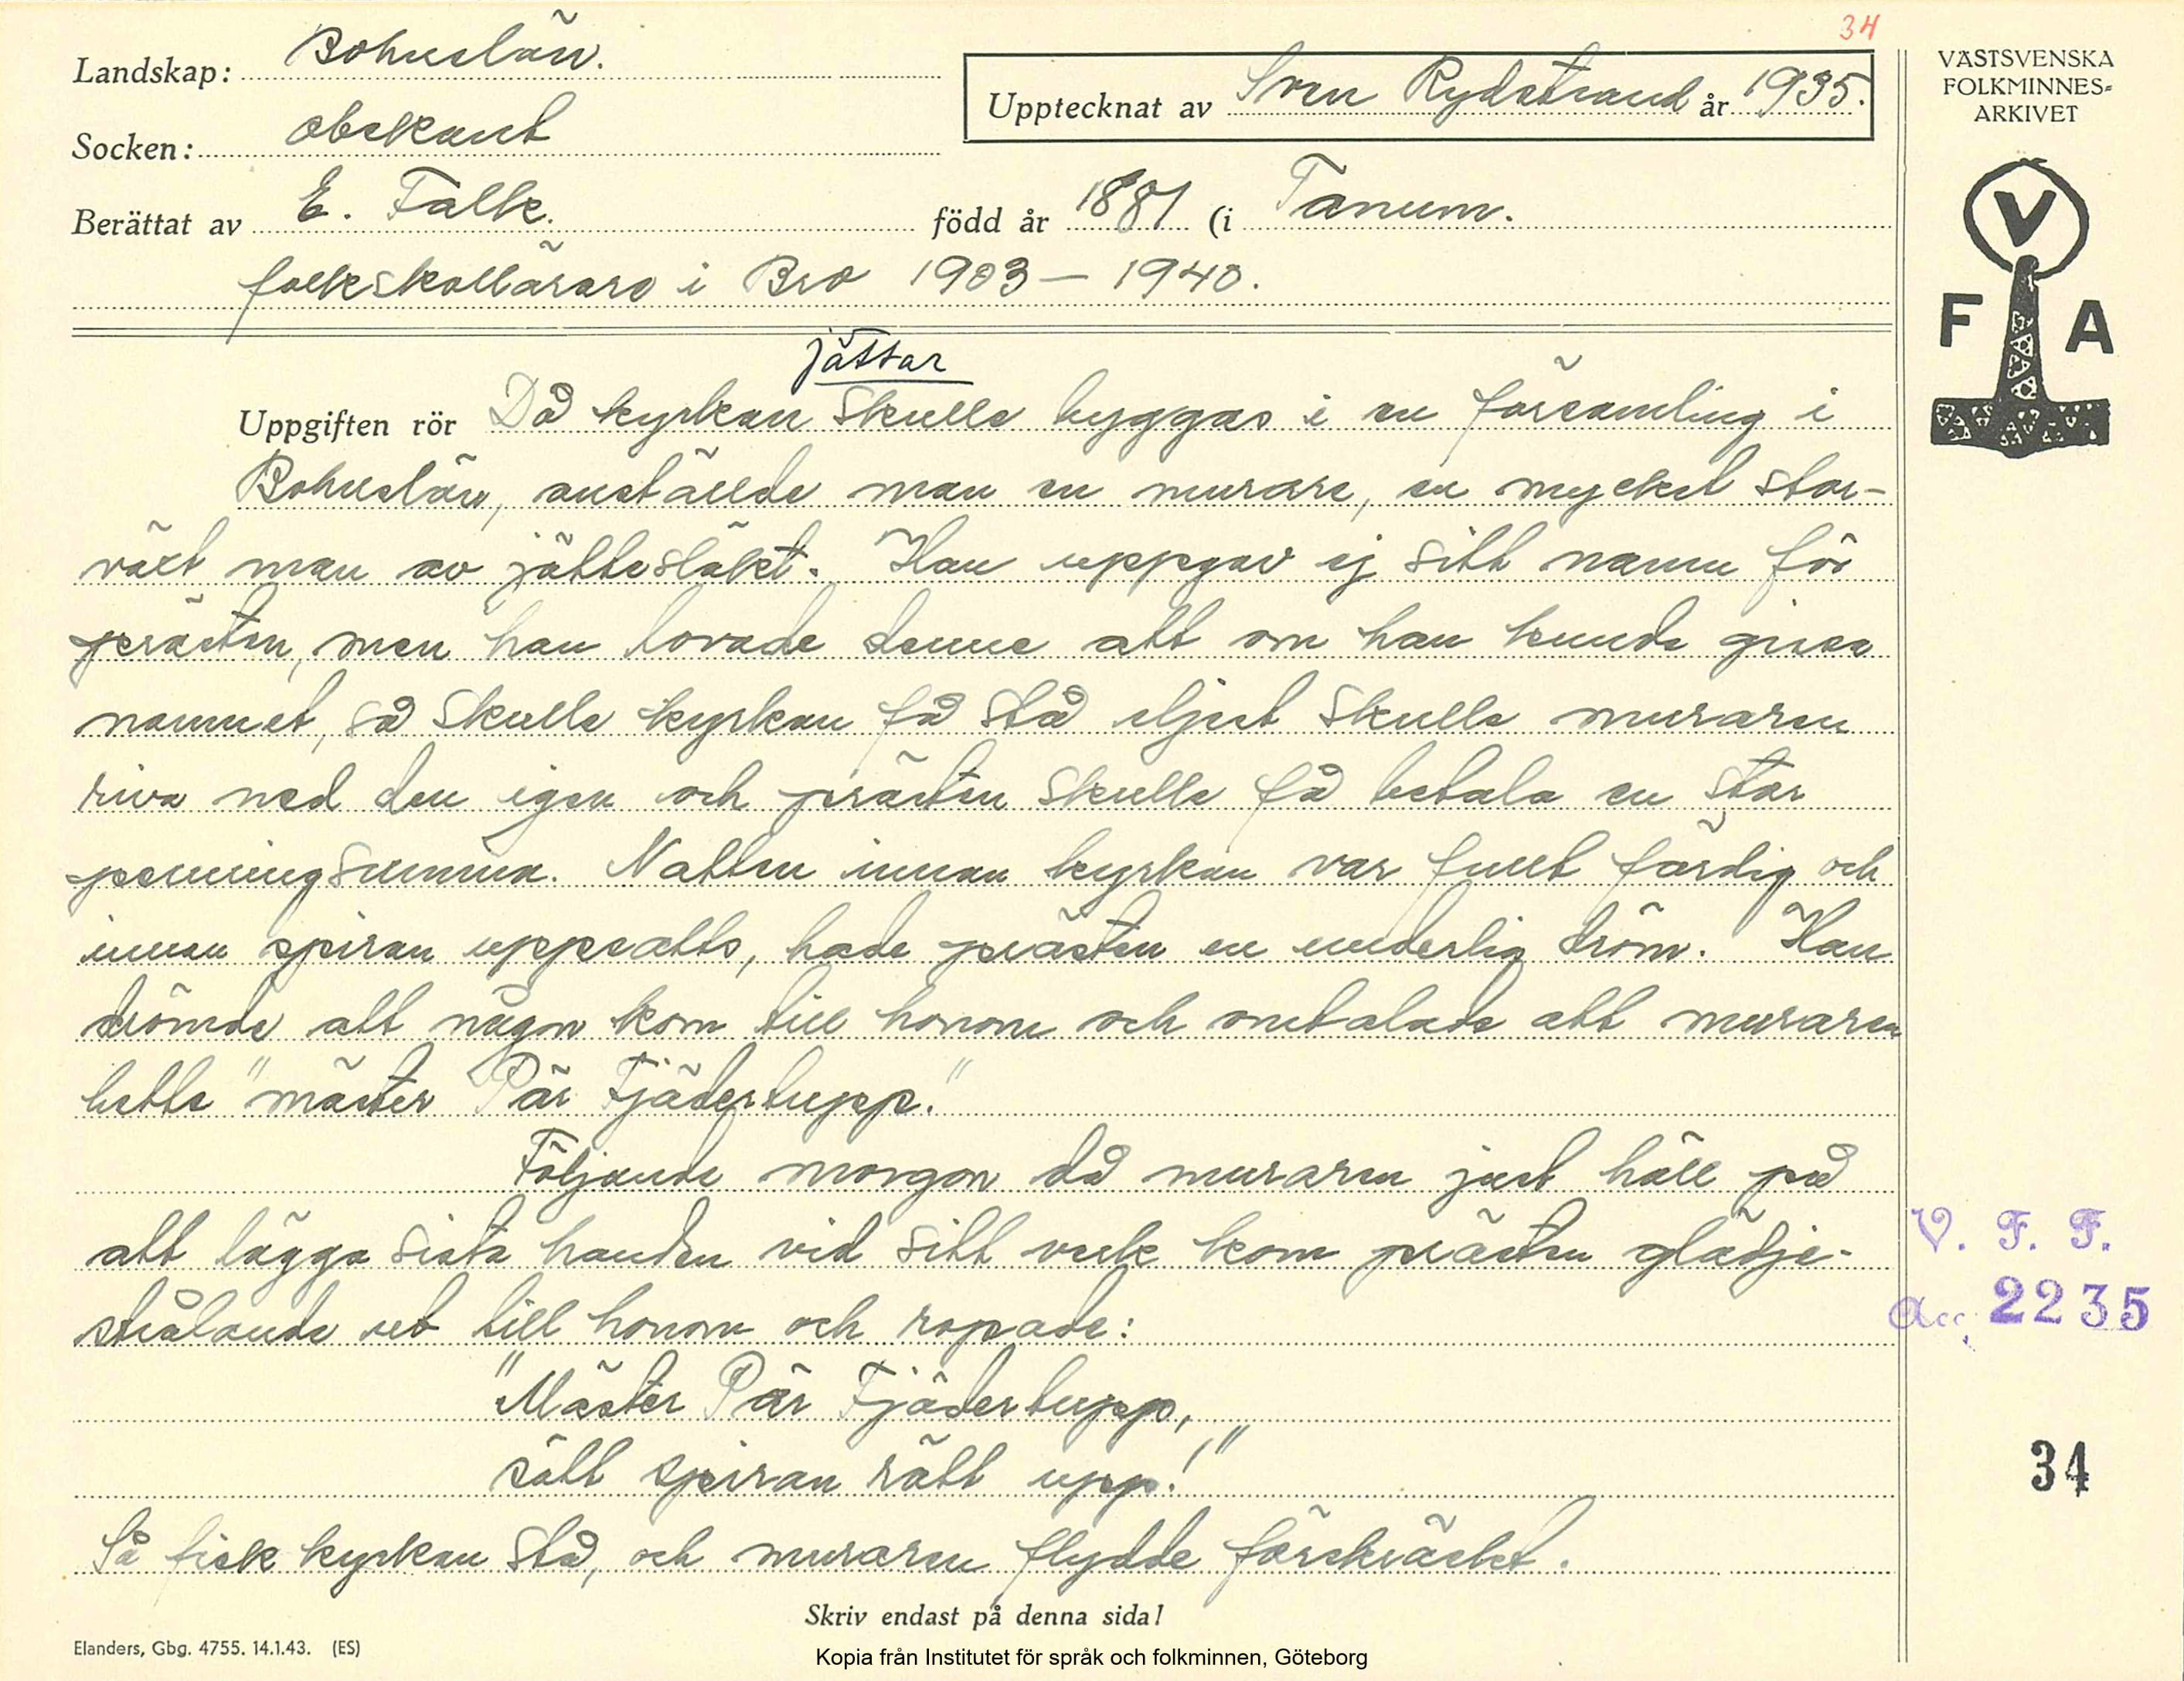 34
Landskap: Bohuslän.
Upptecknat av Sven Rydstrand år 1935.
VÄSTSVENSKA
FOLKMINNES-
ARKIVET
Socken: obekant
Berättat av E. Falk. född år 1881 (i Tanum.
folkskollärare i Bro 1903 – 1940.
V
F A
jättar
Uppgiften rör Då kyrkan skulle byggas i en församling i
Bohuslän, anställde man en murare, en mycket stor-
växt man av jättesläkt. Han uppgav ej sitt namn för
prästen, men han lovade denne att om han kunde gissa
namnet, så skulle kyrkan få stå eljest skulle muraren
riva ned den igen och prästen skulle få betala en stor
penningsumma. Natten innan kyrkan var fullt färdig och
innan spiran uppsatts, hade prästen en underlig dröm. Han
drömde att någon kom till honom och omtalade att muraren
hette "mäster Pär Fjädertupp."
Följande morgon då muraren just höll på
att lägga sista handen vid sitt verk kom prästen glädje-
strålande ut till honom och ropade:
"Mäster Pär Fjädertupp,
sätt spiran rätt upp!"
Så fick kyrkan stå, och muraren flydde förskräckt.
V. F. F.
Acc. 2235
34
Skriv endast på denna sida!
Elanders, Gbg. 4755. 14.1.43. (ES)
Kopia från Institutet för språk och folkminnen, Göteborg